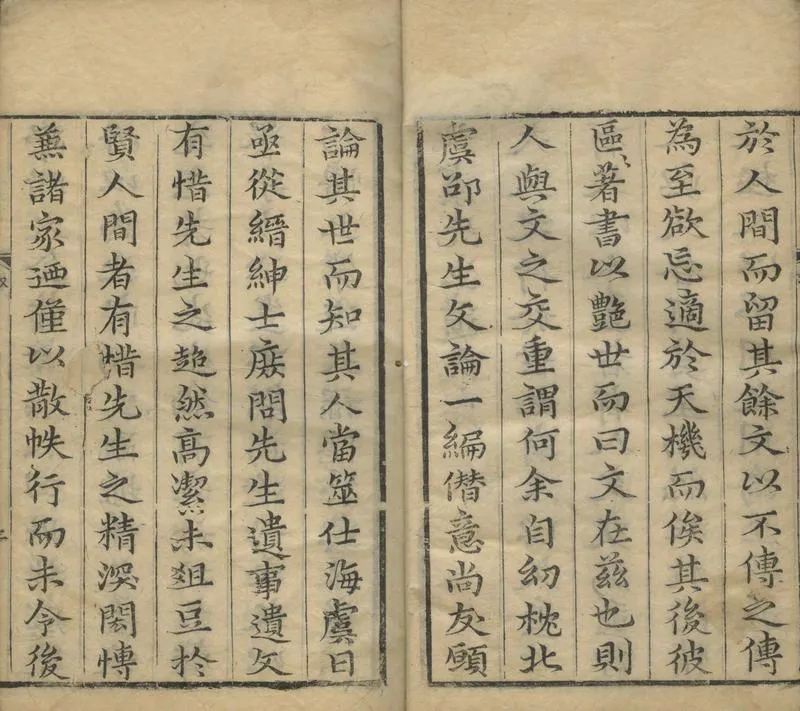 於人間而留其餘文以不傳之傳
為至欲忘適於天機而俟其後彼
區〻著書以艷世而曰文在茲也則
人與文之交重謂何余自幼枕北
虞邵先生文論一編僭意尚友願
論其世而知其人當筮仕海虞日
亟從縉紳士庶問先生遺事遺文
有惜先生之超然高潔未俎豆於
賢人間者有惜先生之精深閎博
兼諸家迺僅以散帙行而未令後